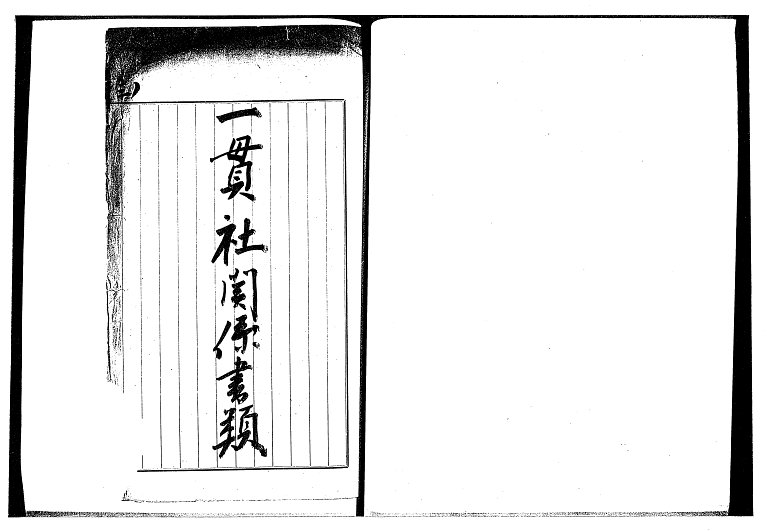 一貫社関係書類